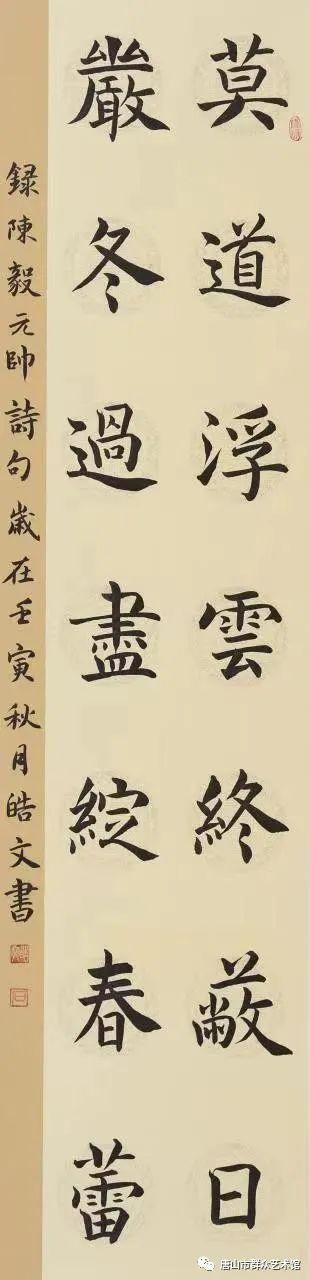 莫道浮雲終蔽日
嚴冬過盡綻春蕾
録陳毅元帥詩句歲在壬寅秋月皓文書
唐山市群众艺术馆